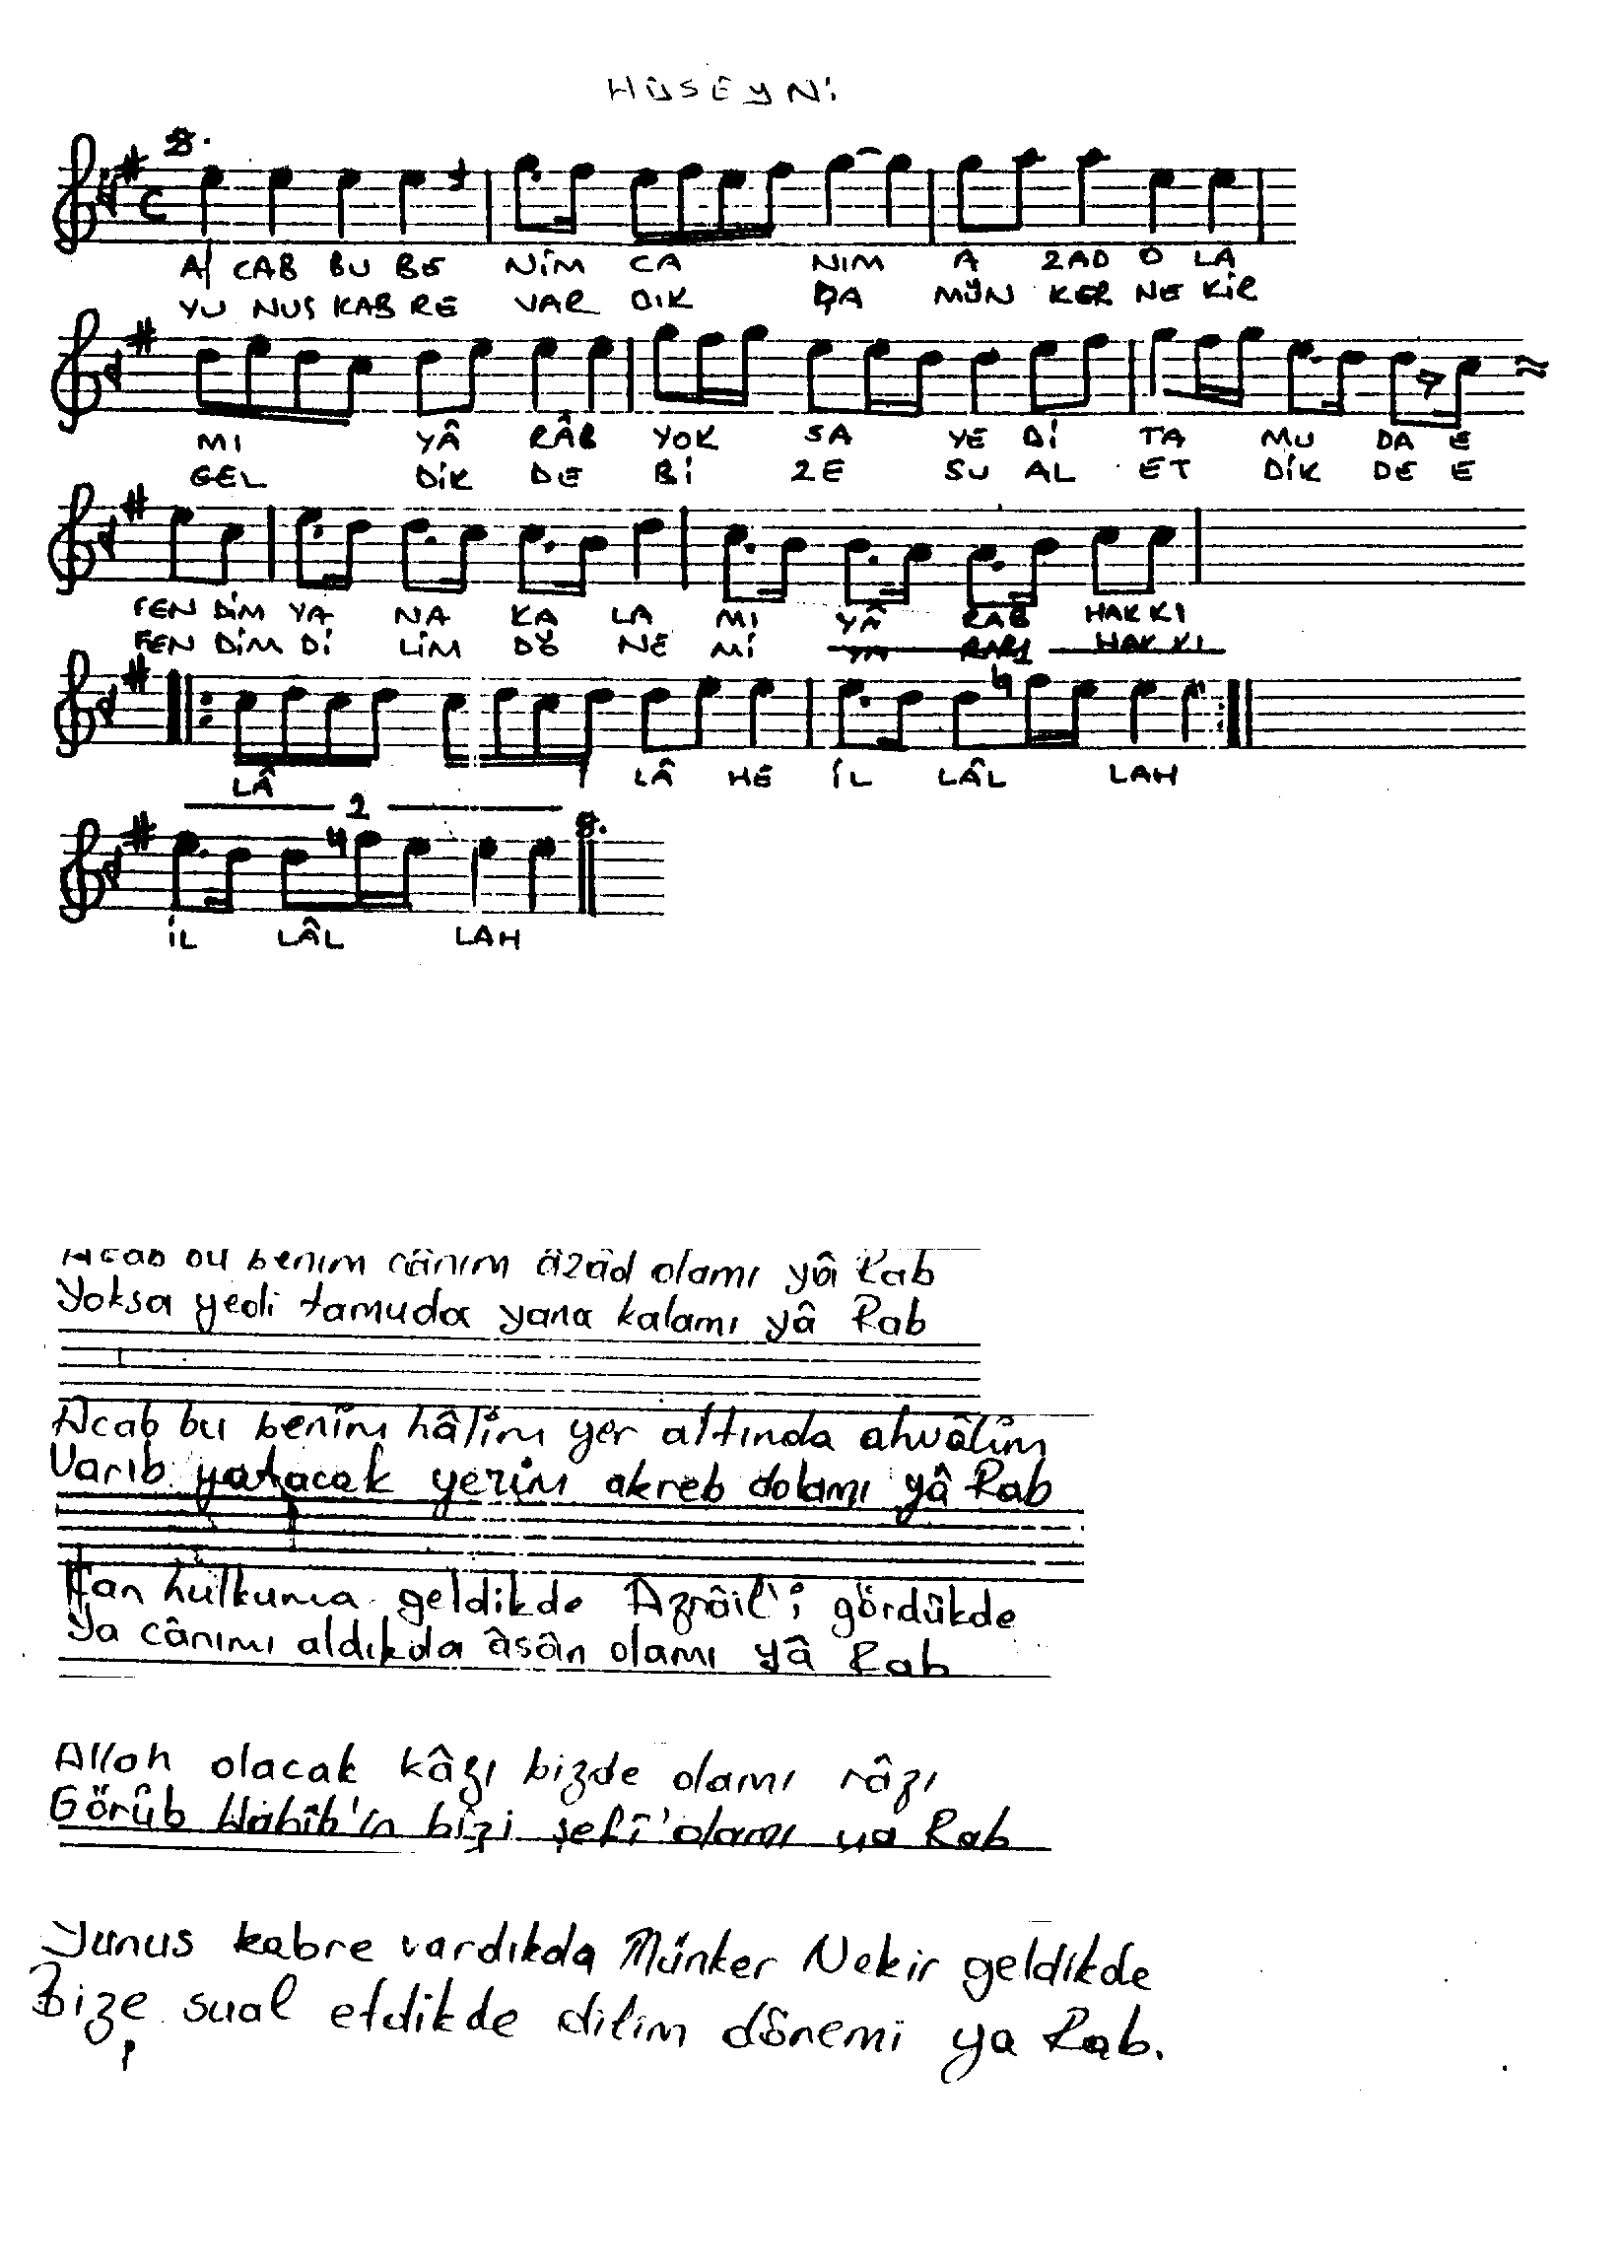 HÜSEYNİ
A CAB BU BE NİM CA NIM A ZAD O LA
YU NUS KAB RE VAR DIK DA MÜN KER NE KİR
MI YÂ RÂB YOK SA YE Dİ TA MU DA E
GEL DİK DE Bİ ZE SU AL ET DİK DE E
FEN DİM YA NA KA LA MI YÂ RAB HAK KI
FEN DİM Dİ LİM DÖ NE Mİ YA RABI HAK KI
LÂ İ LÂ HE İL LÂL LAH
2
İL LÂL LAH
Acab bu benim cânım âzâd olamı yâ Rab
Yoksa yedi tamuda yana kalamı yâ Rab
Acab bu benim hâlim yer altında ahvâlim
Varıb yatacak yerim akreb dolamı yâ Rab
Can hulkuma geldikde Azrâil'i gördükde
Ya cânımı aldıkda âsân olamı yâ Rab
Allah olacak kâzı bizde olamı râzı
Görüb Habîb'in bizi şefî' olamı ya Rab
Yunus kabre vardıkda Münker Nekir geldikde
Bize sual etdikde dilim dönemi ya Rab.